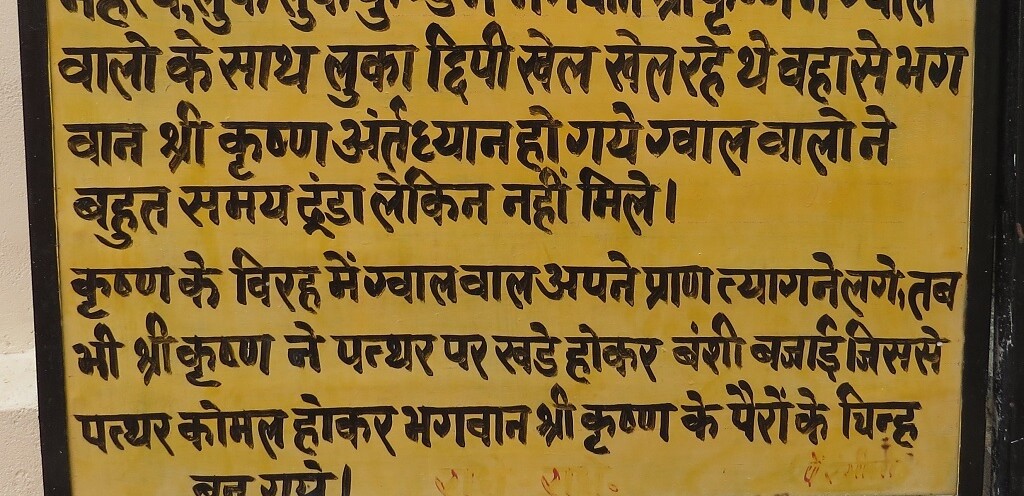 वालो के साथ लुका छिपी खेल खेल रहे थे वहा से भग
वान श्री कृष्ण अंर्तध्यान हो गये ग्वाल वालो ने
बहुत समय ढूंडा लेकिन नहीं मिले।
कृष्ण के विरह में ग्वाल वाल अपने प्राण त्यागने लगे, तब
भी श्री कृष्ण ने पत्थर पर खडे होकर बंशी बजाई जिससे
पत्थर कोमल होकर भगवान श्री कृष्ण के पैरों के चिन्ह
बन गये।